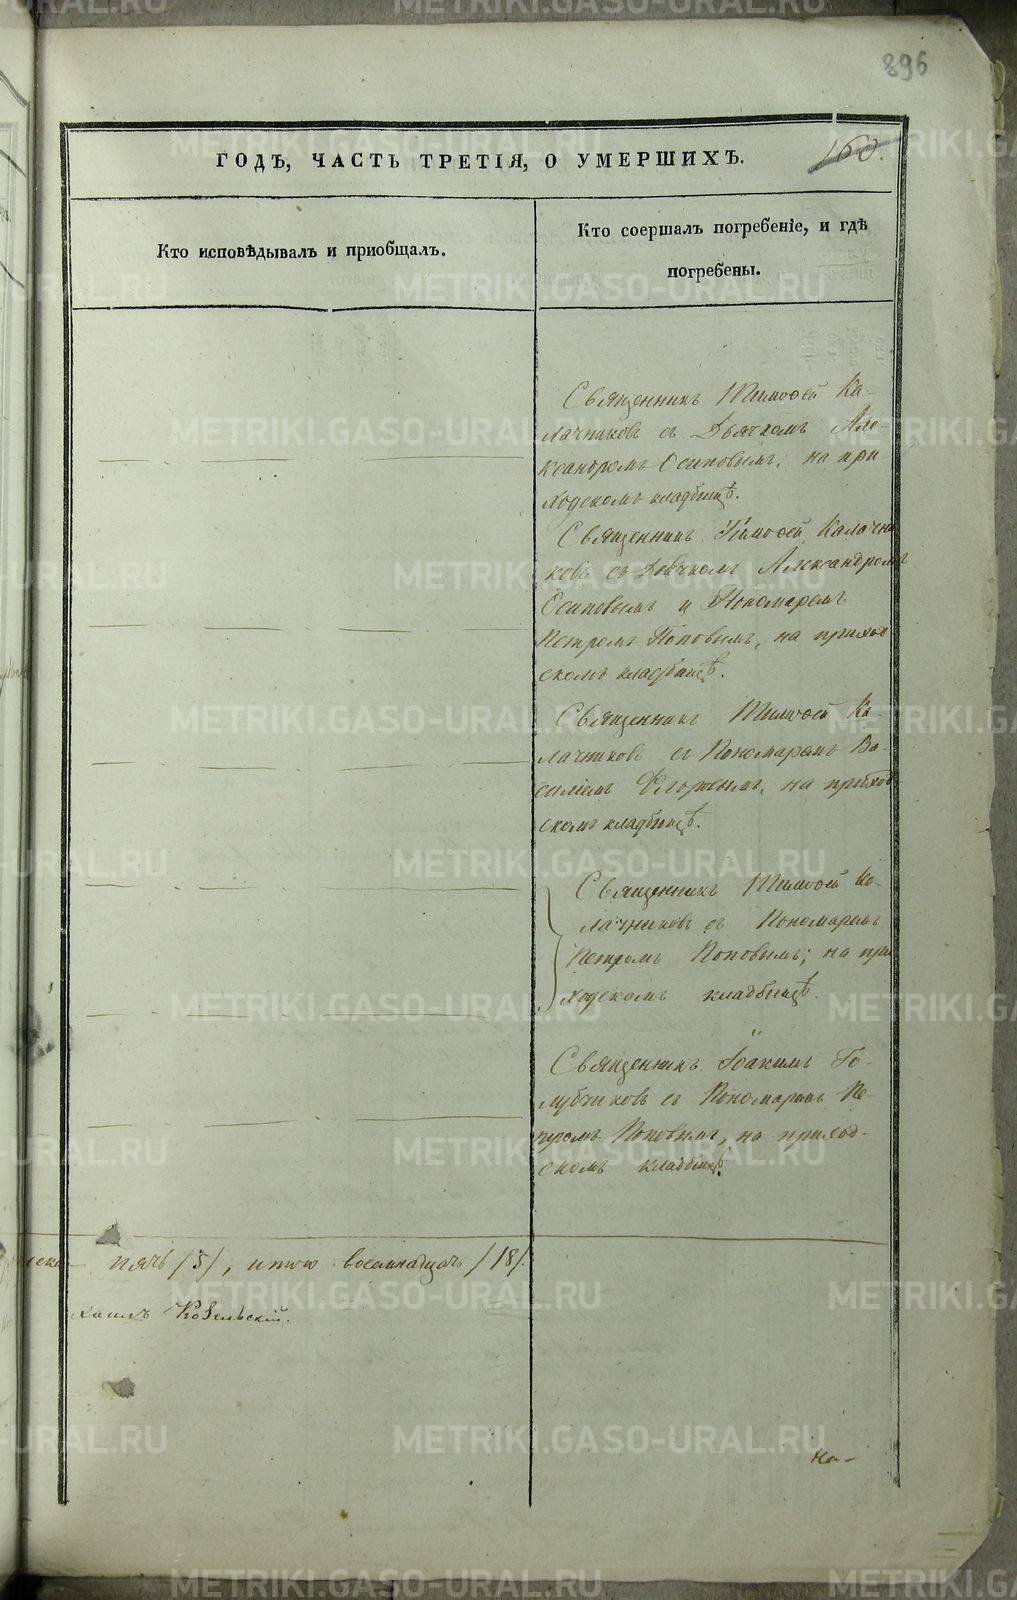 896
160.
ГОДЪ, ЧАСТЬ ТРЕТІЯ, О УМЕРШИХЪ.
Кто исповѣдывалъ и приобщалъ.
Кто соершалъ погребеніе, и гдѣ
погребены.
Священникъ Тимофей Ка-
лачниковъ съ Дьячкомъ Але-
ксандромъ Осиповымъ, на при-
ходскомъ кладбищѣ.
Священникъ Тимофей Калачни
ковъ съ Дьячкомъ Александромъ
Осиповымъ и Пономаремъ
Петромъ Поповымъ, на приход
скомъ кладбищѣ.
Священникъ Тимофей Ка-
лачниковъ съ Пономаремъ Ва-
силіемъ на приход
скомъ кладбищѣ.
Священникъ Тимофей Ка-
лачниковъ съ Пономаремъ
Петромъ Поповымъ; на при
ходскомъ кладбищѣ.
Священникъ Іоакимъ Го-
лубчиковъ съ Пономаремъ Пе-
тромъ Поповымъ, на приход-
скомъ кладбищѣ.
пять /5/, итого восемнадцать /18/.
хаилъ Козельскій.
На-
METRIKI.GASO-URAL.RU